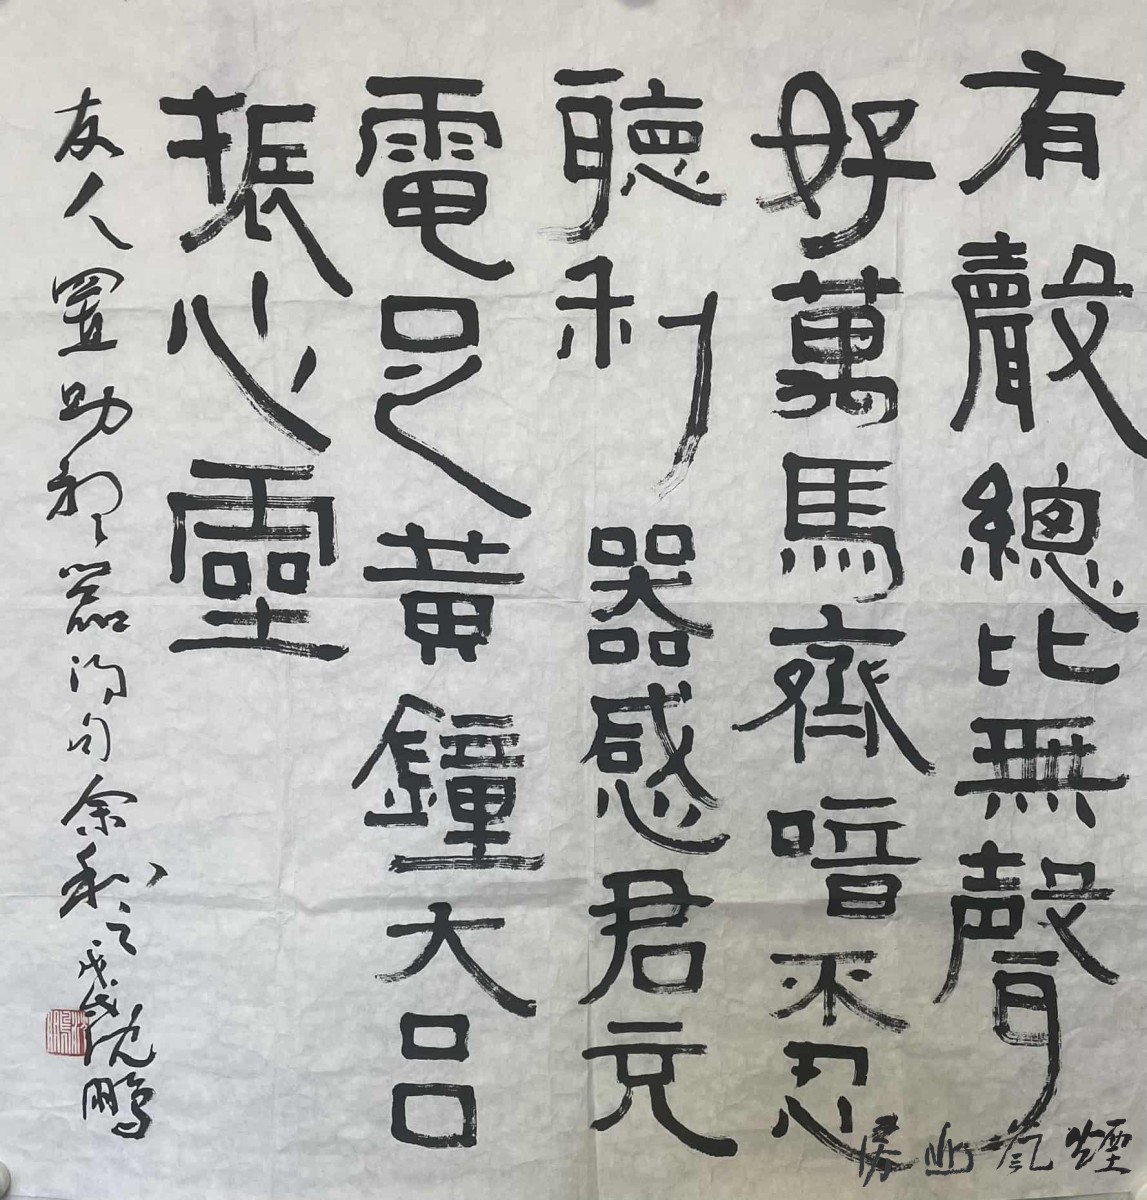 有聲總比無聲
好萬馬齊喑不忍
聽利器感君充
電足黃鐘大呂
振心靈
友人置助聽器得句余和之戊戌沈鵬
煙山房